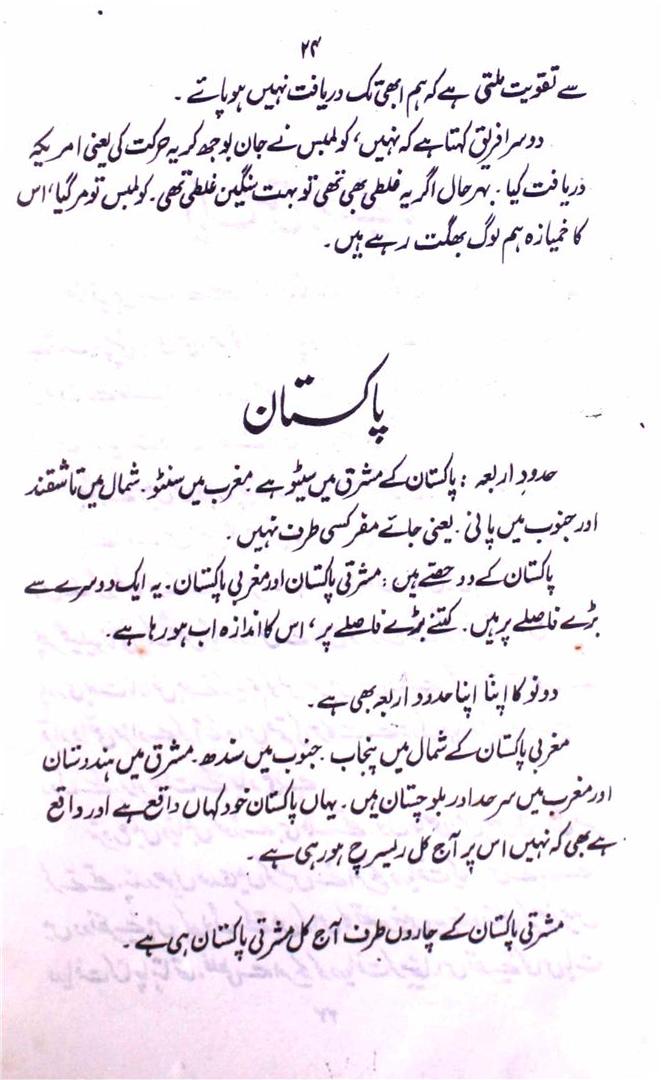 ۲۴
سے تقویت ملتی ہے کہ ہم ابھی تک دریافت نہیں ہو پائے ۔
دوسرا فریق کہتا ہے کہ نہیں، کولمبس نے جان بوجھ کر یہ حرکت کی یعنی امریکہ
دریافت کیا ۔ بہر حال اگر یہ غلطی بھی تھی تو بہت سنگین غلطی تھی ۔ کولمبس تو مر گیا، اس
کا خمیازہ ہم لوگ بھگت رہے ہیں ۔
پاکستان
حدودِ اربعہ : پاکستان کے مشرق میں سیٹو ہے ۔ مغرب میں سنٹو ۔ شمال میں تاشقند
اور جنوب میں پانی ۔ یعنی جائے مفر کسی طرف نہیں ۔
پاکستان کے دو حصے ہیں : مشرقی پاکستان اور مغربی پاکستان ۔ یہ ایک دوسرے سے
بڑے فاصلے پر ہیں ۔ کتنے بڑے فاصلے پر، اس کا اندازہ اب ہو رہا ہے ۔
دونو کا اپنا اپنا حدود اربعہ بھی ہے ۔
مغربی پاکستان کے شمال میں پنجاب ۔ جنوب میں سندھ ۔ مشرق میں ہندوستان
اور مغرب میں سرحد اور بلوچستان ہیں ۔ یہاں پاکستان خود کہاں واقع ہے اور واقع
ہے بھی کہ نہیں اس پر آج کل ریسرچ ہو رہی ہے ۔
مشرقی پاکستان کے چاروں طرف آج کل مشرقی پاکستان ہی ہے ۔